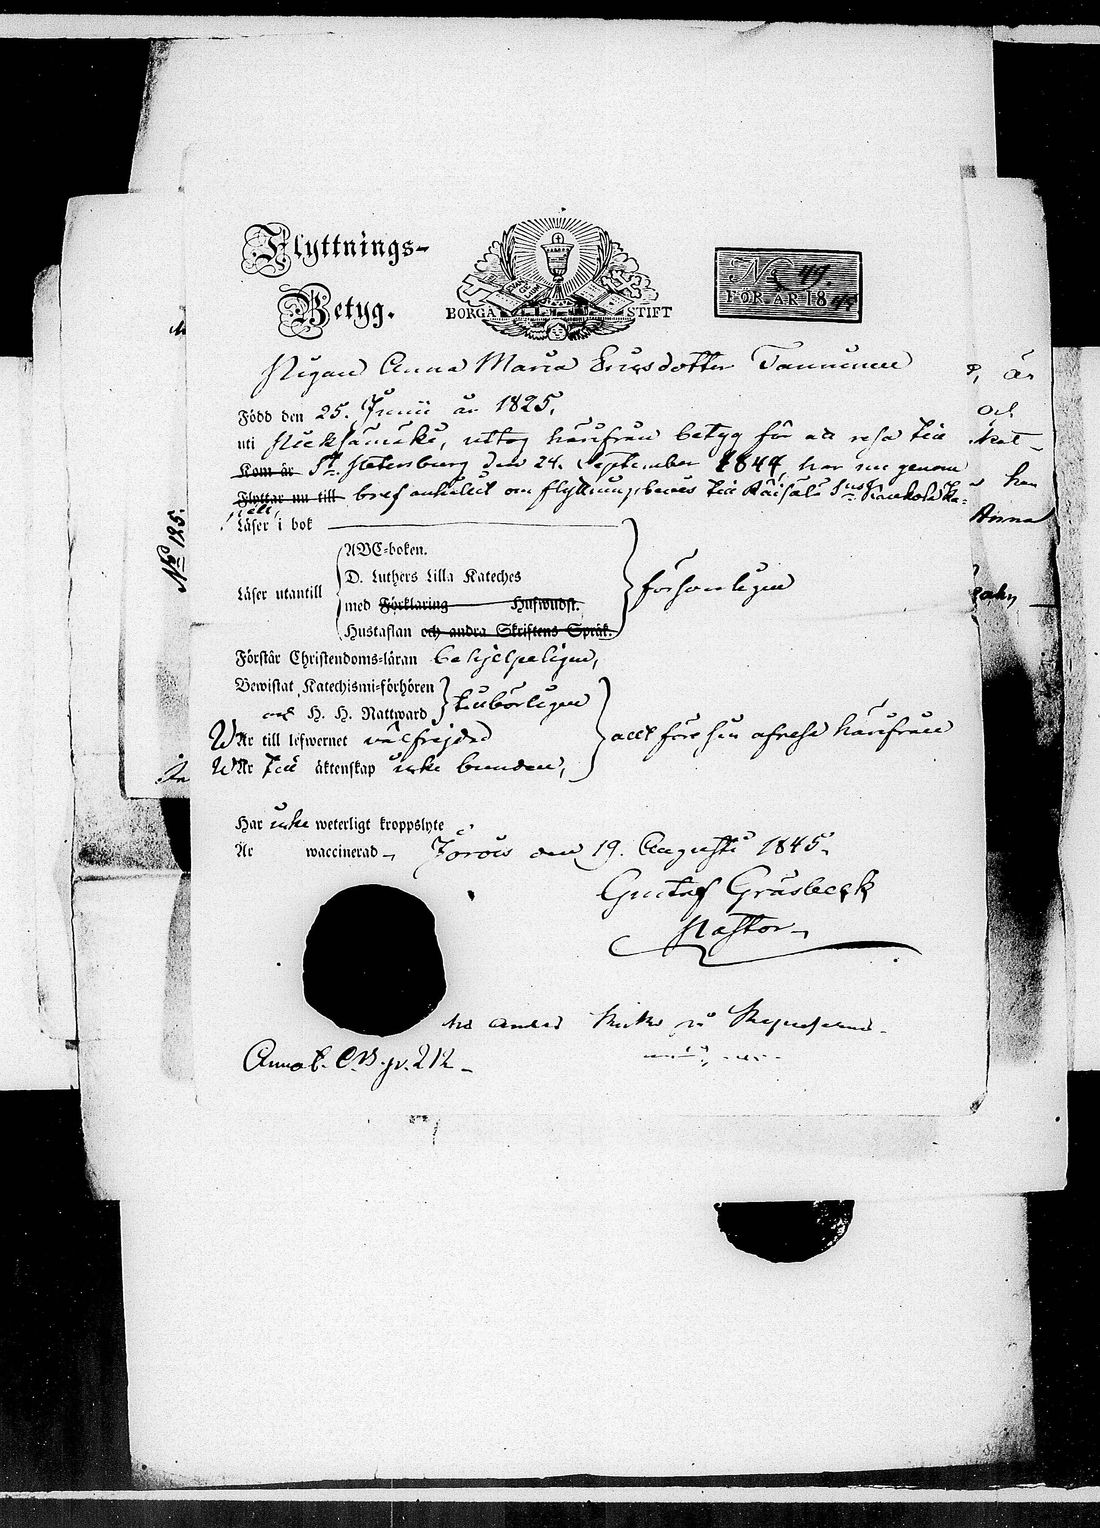 Flyttnings-
Betyg.
BORGÅ STIFT
No 49.
FÖR ÅR 1845
Pigan Anna Maria Ericsdotter Tanninen
Född den 25. Junii år 1825,
uti Pieksämäki, uttog härifrån betyg för att resa till
Kom år St. Petersburg den 24. September 1844, har nu genom
Flyttar nu till bref anhållit om flyttningsbevis till
Läser i bok
ABC-boken.
D. Luthers Lilla Kateches
Läser utantill
med Förklaring Huswudst.
Hustaflan och andra Skriftens Språk.
försvarligen
Förstår Christendoms-läran behjelpeligen,
Bewistat Katechismi-förhören
och H. H. Nattward
tillbörligen
War till lefwernet välfrejdad
War till äktenskap icke bunden,
allt före sin afresa härifrån
Har icke weterligt kroppslyte
Är waccinerad, Jorois den 19. Augusti 1845.
Gustaf Gråsbeck
Pastor
C.B. p. 212
No 125.
är
och
Anna